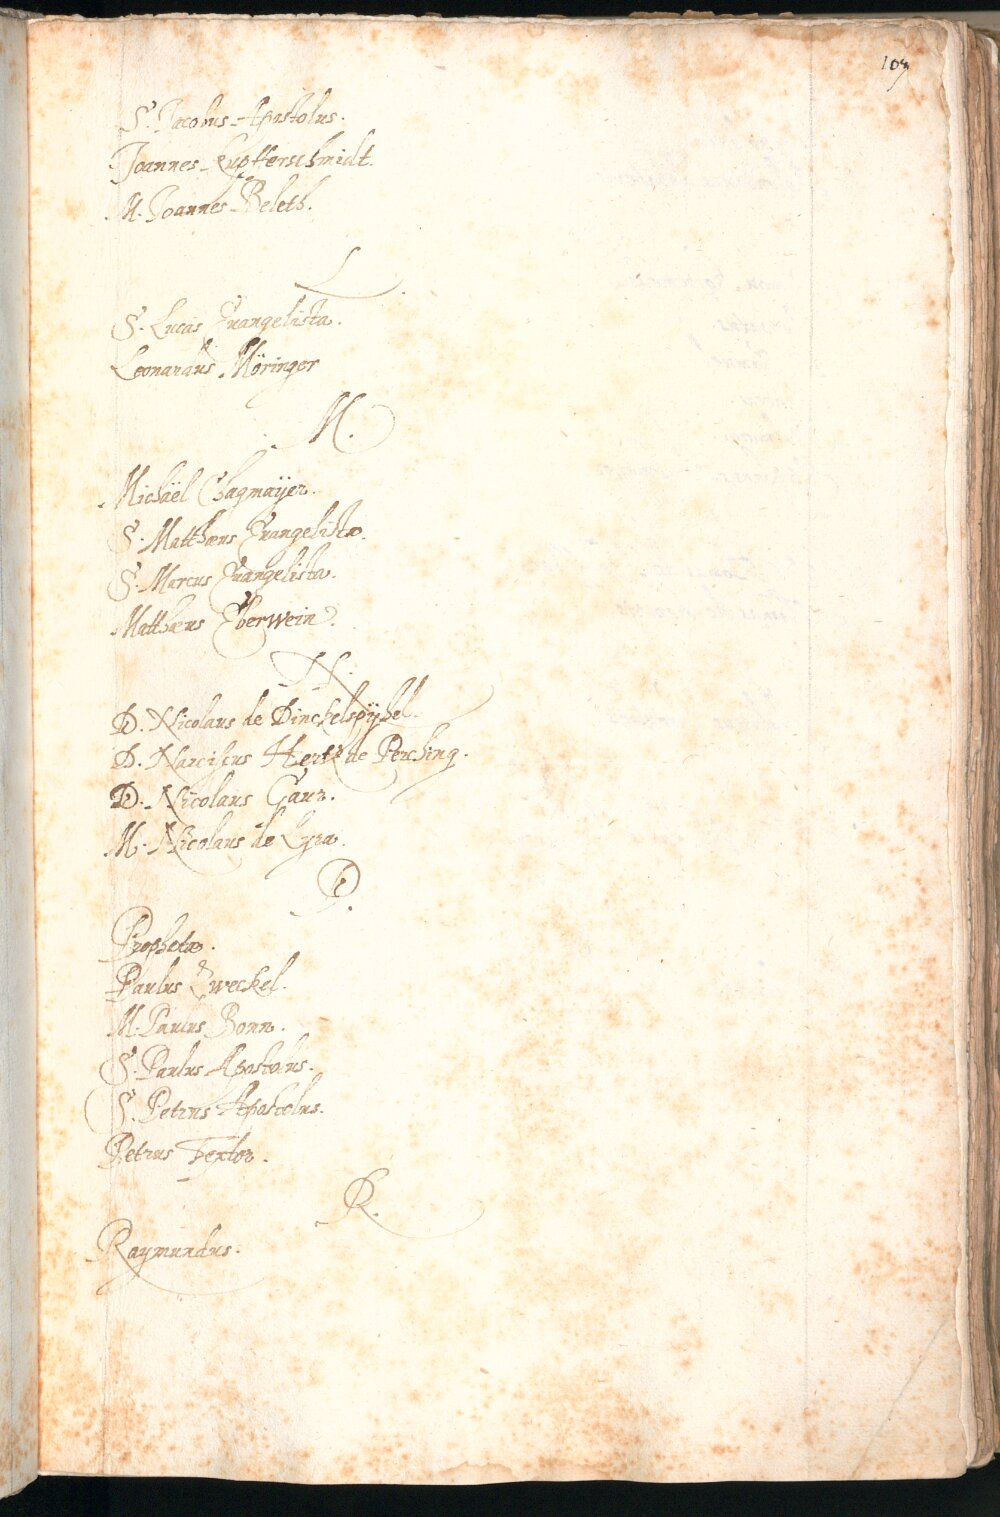 107
S. Jacobus Apostolus.
Joannes Kupfferschmidt.
M. Joannes Beleth.
L.
S. Lucas Evangelista.
Leonardus Möringer
M.
Michaël Chagmaÿer.
S. Matthæus Evangelista.
S. Marcus Evangelista.
Matthæus Eberwein.
N.
D. Nicolaus de Dinckelspÿhel.
D. Narcissus Hertz de Perching.
D. Nicolaus Gaur.
M. Nicolaus de Lyra.
P.
Prophetæ.
Paulus Zweckel.
M. Paulus Bonn.
S. Paulus Apostolus.
S. Petrus Apostolus.
Petrus Textor.
R.
Raymundus.